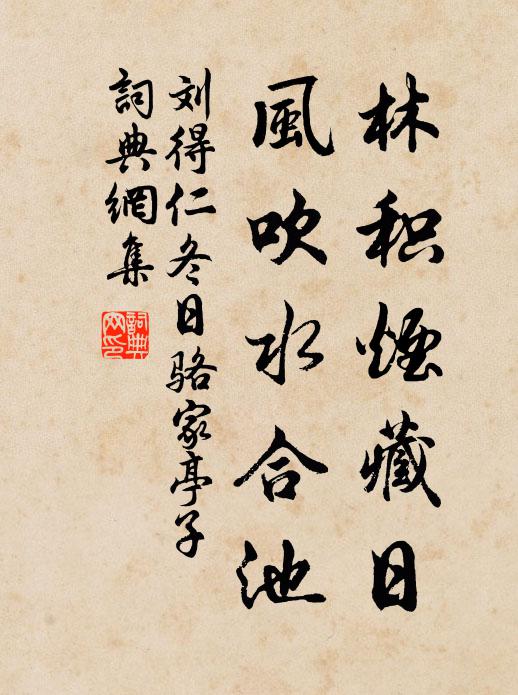 林积煙藏日
風吹水合池
刘得仁冬日骆家亭子
詞典網集
詞典
网印